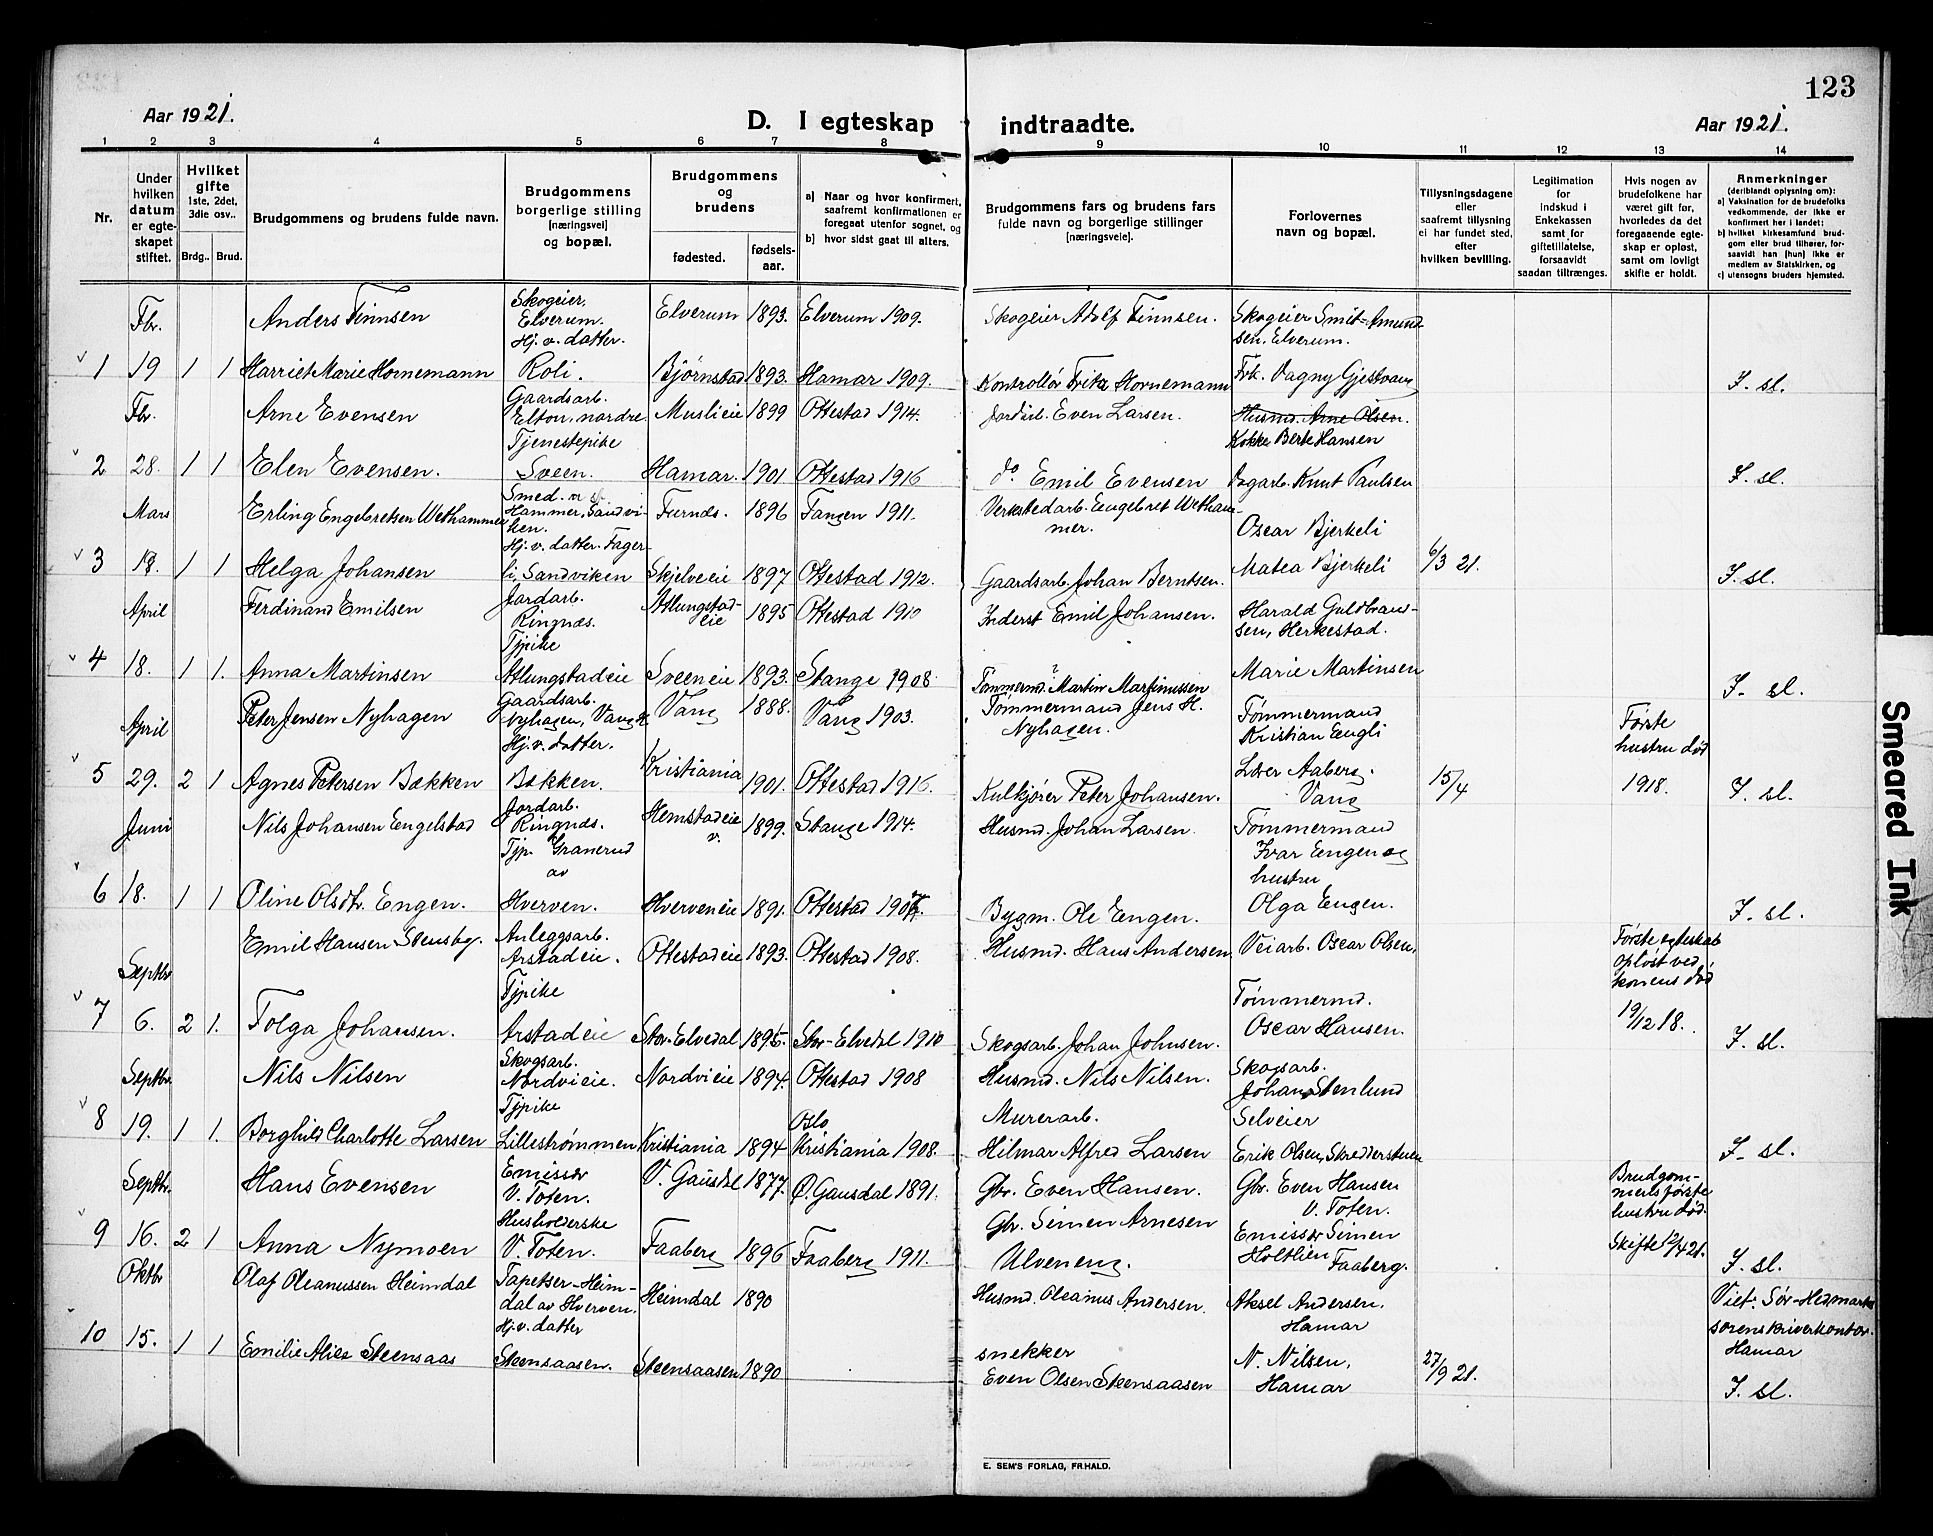 123
Aar 1921.
D. I egteskap indtraadte.
Aar 1921.
1 2 3 4 5 6 7 8 9 10 11 12 13 14
Nr.
Under hvilken datum er egte-skapet stiftet.
Hvilket gifte 1ste, 2det, 3die osv..
Brdg.. Brud.
Brudgommens og brudens fulde navn.
Brudgommens borgerlige stilling (næringsvei) og bopæl.
Brudgommens og brudens
fødested.
fødsels-aar.
a) Naar og hvor konfirmert, saafremt konfirmationen er foregaat utenfor sognet, og
b) hvor sidst gaat til alters.
Brudgommens fars og brudens fars fulde navn og borgerlige stillinger (næringsveie).
Forlovernes navn og bopæl.
Tillysningsdagene eller saafremt tillysning ei har fundet sted, efter hvilken bevilling.
Legitimation for indskud i Enkekassen samt for giftetillatelse, forsaavidt saadan tiltrænges.
Hvis nogen av brudefolkene har været gift før, hvorledes da det foregaaende egte-skap er opløst, samt om lovligt skifte er holdt.
Anmerkninger (deriblandt oplysning om):
a) Vaksination for de brudefolks vedkommende, der ikke er konfirmert her i landet;
b) hvilket kirkesamfund brud-gom eller brud tilhører, for-saavidt han (hun) ikke er medlem av Statskirken, og
c) utensogns bruders hjemsted.
Fbr. Anders Finnsen Skogeier, Elverum. Elverum 1893. Elverum 1909. Skogeier Adolf Finnsen. Skogeier Smit-Amund-sen, Elverum.
1 19 1 1 Harriet Marie Hornemann Hj. v. datter. Roli. Bjørnstad 1893. Hamar 1909. Kontrollør Fritz Hornemann Frk. Dagny Gjestvang J. sl.
Fbr. Arne Evensen Gaardsarb. Elton, nordre. Muslieie 1899 Ottestad 1914. Jordarb. Even Larsen. Husmd. Arne Olsen. Kokke Berte Hansen
2 28. 1 1 Elen Evensen. Tjenestepike Sveen. Hamar. 1901 Ottestad 1916 do Emil Evensen Dagarb. Knut Paulsen J. sl.
Mars Erling Engebretsen Wethammer Smed. Hammer, Sandvi-ken. Furnes. 1896 Tangen 1911. Verkstedarb. Engebret Wetham-mer. Oscar Bjerkeli
3 18. 1 1 Helga Johansen Hj. v. datter. Fager-li, Sandviken Skjelveeie 1897 Ottestad 1912. Gaardsarb. Johan Berntsen. Matea Bjerkeli 6/3 21. J. sl.
April Ferdinand Emilsen Jordarb. Ringnes. Atlungstad-eie 1895 Ottestad 1910 Inderst Emil Johansen. Harald Guldbran-sen, Herkestad.
4 18. 1 1. Anna Martinsen Tjpike Atlungstadeie Sveeneie 1893. Stange 1908 Tømmermd. Martin Martinussen Marie Martinsen J. sl.
April Peter Jensen Nyhagen Gaardsarb. Nyhagen, Vang H. Vang 1888. Vang 1903. Tømmermand Jens H. Nyhagen. Tømmermand Kristian Engli
5 29. 2 1 Agnes Petersen Bakken Hj. v. datter. Bakken. Kristiania 1901. Ottestad 1916. Kulkjører Peter Johansen. Lærer Aaberg. Vang 15/4 Første hustru død 1918. J. sl.
Juni Nils Johansen Engelstad Jordarb. Ringnes. Hemstadeie v. 1899. Stange 1914. Husmd. Johan Larsen. Tømmermand Ivar Engen og hustru
6 18. 1 1 Oline Olsdtr. Engen. Tjp. Granerud av Hverven. Hverveneie 1891. Ottestad 1907. Bygm. Ole Engen. Olga Engen. J. sl.
Septbr Emil Hansen Stensbg. Anleggsarb. Arstadeie. Ottestadeie 1893. Ottestad 1908. Husmd. Hans Andersen Veiarb. Oscar Olsen.
7 6. 2 1. Tolga Johansen. Tjpike Arstadeie Stor-Elvedal 1895. Stor-Elvedal 1910 Skogsarb. Johan Johnsen. Tømmermd. Oscar Hansen. Første egteskab opløst ved konens død 19/12 18. J. sl.
Septbr. Nils Nilsen Skogsarb. Nordvieie. Nordvieie 1894. Ottestad 1908 Husmd. Nils Nilsen. Skogsarb. Johan Stenlund
8 19. 1 1. Borghild Charlotte Larsen Tjpike Lillestrømmen Kristiania 1894 Oslo Kristiania 1908. Murerarb. Hilmar Alfred Larsen Selveier Erik Olsen, Skredderstuen J. sl.
Septbr. Hans Evensen Emissær V. Toten. V. Gausdal 1877. Ø. Gausdal 1891. Gbr. Even Hansen. Gbr. Even Hansen V. Toten.
9 16. 2 1 Anna Nymoen Husholderske V. Toten. Faaberg 1896 Faaberg 1911. Gbr. Simen Arnesen Ulveneng. Emissær Simen Holtlien Faaberg. Brudgom-mens første hustru død. Skifte 12/4 21. J. sl.
Oktbr Olaf Oleanussen Heimdal Tapetser-Heim-dal av Hverven. Heimdal 1890 Husmd. Oleanus Andersen. Aksel Andersen. Hamar Viet: Sør-Hedmark sorenskriverkontor. Hamar
10 15. 1 1 Emilie Alice Steensaas Hj. v. datter Steensaasen. Steensaasen 1890 snekker Even Olsen Steensaasen N. Nilsen. Hamar 27/9 21. J. sl.
E. SEM'S FORLAG, FR.HALD.
Smeared Ink